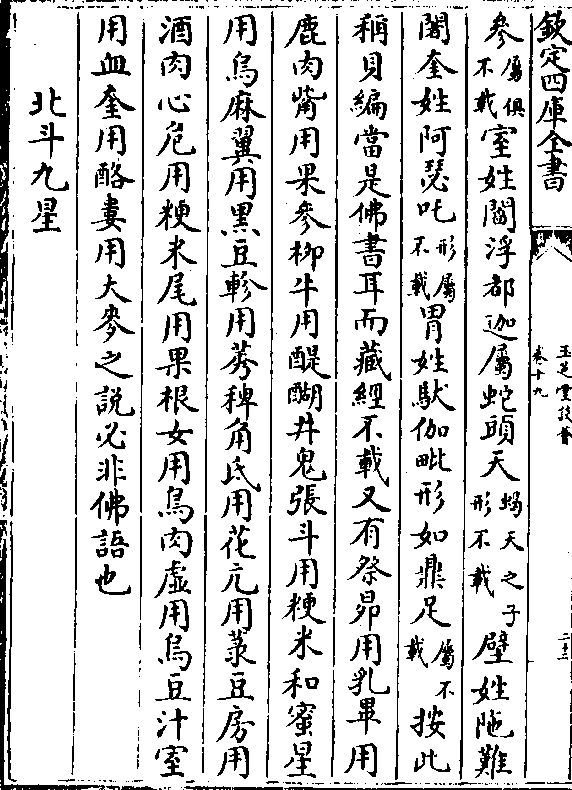 欽定四庫全書
玉芝堂談薈
卷十九
二十三
參屬俱不載室姓閻浮都迦屬蛇頭天蝎天之子形不載壁姓陁難
闍奎姓阿瑟吒形屬不載胃姓馱伽毗形如鼎足屬不載按此
稱貝編當是佛書耳而藏經不載又有祭昴用乳畢用
鹿肉觜用果參柳牛用醍醐井鬼張斗用粳米和蜜星
用烏麻翼用黑豆軫用莠稗角氐用花亢用菉豆房用
酒肉心危用粳米尾用果根女用鳥肉虛用烏豆汁室
用血奎用酪婁用大麥之說必非佛語也
北斗九星